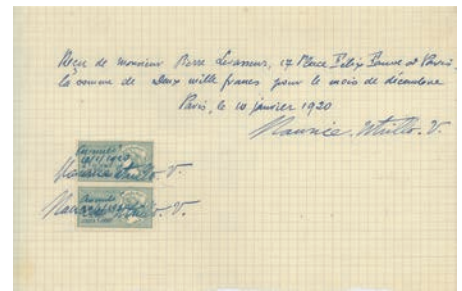 Reçu de monsieur Pierre Levasseur, 17 Place Félix Faure à Paris,
la somme de Deux mille francs pour le mois de décembre
Paris, le 10 janvier 1920
Maurice. Utrillo. V.
Annulé
Maurice Utrillo. V.
Annulé
Maurice Utrillo. V.